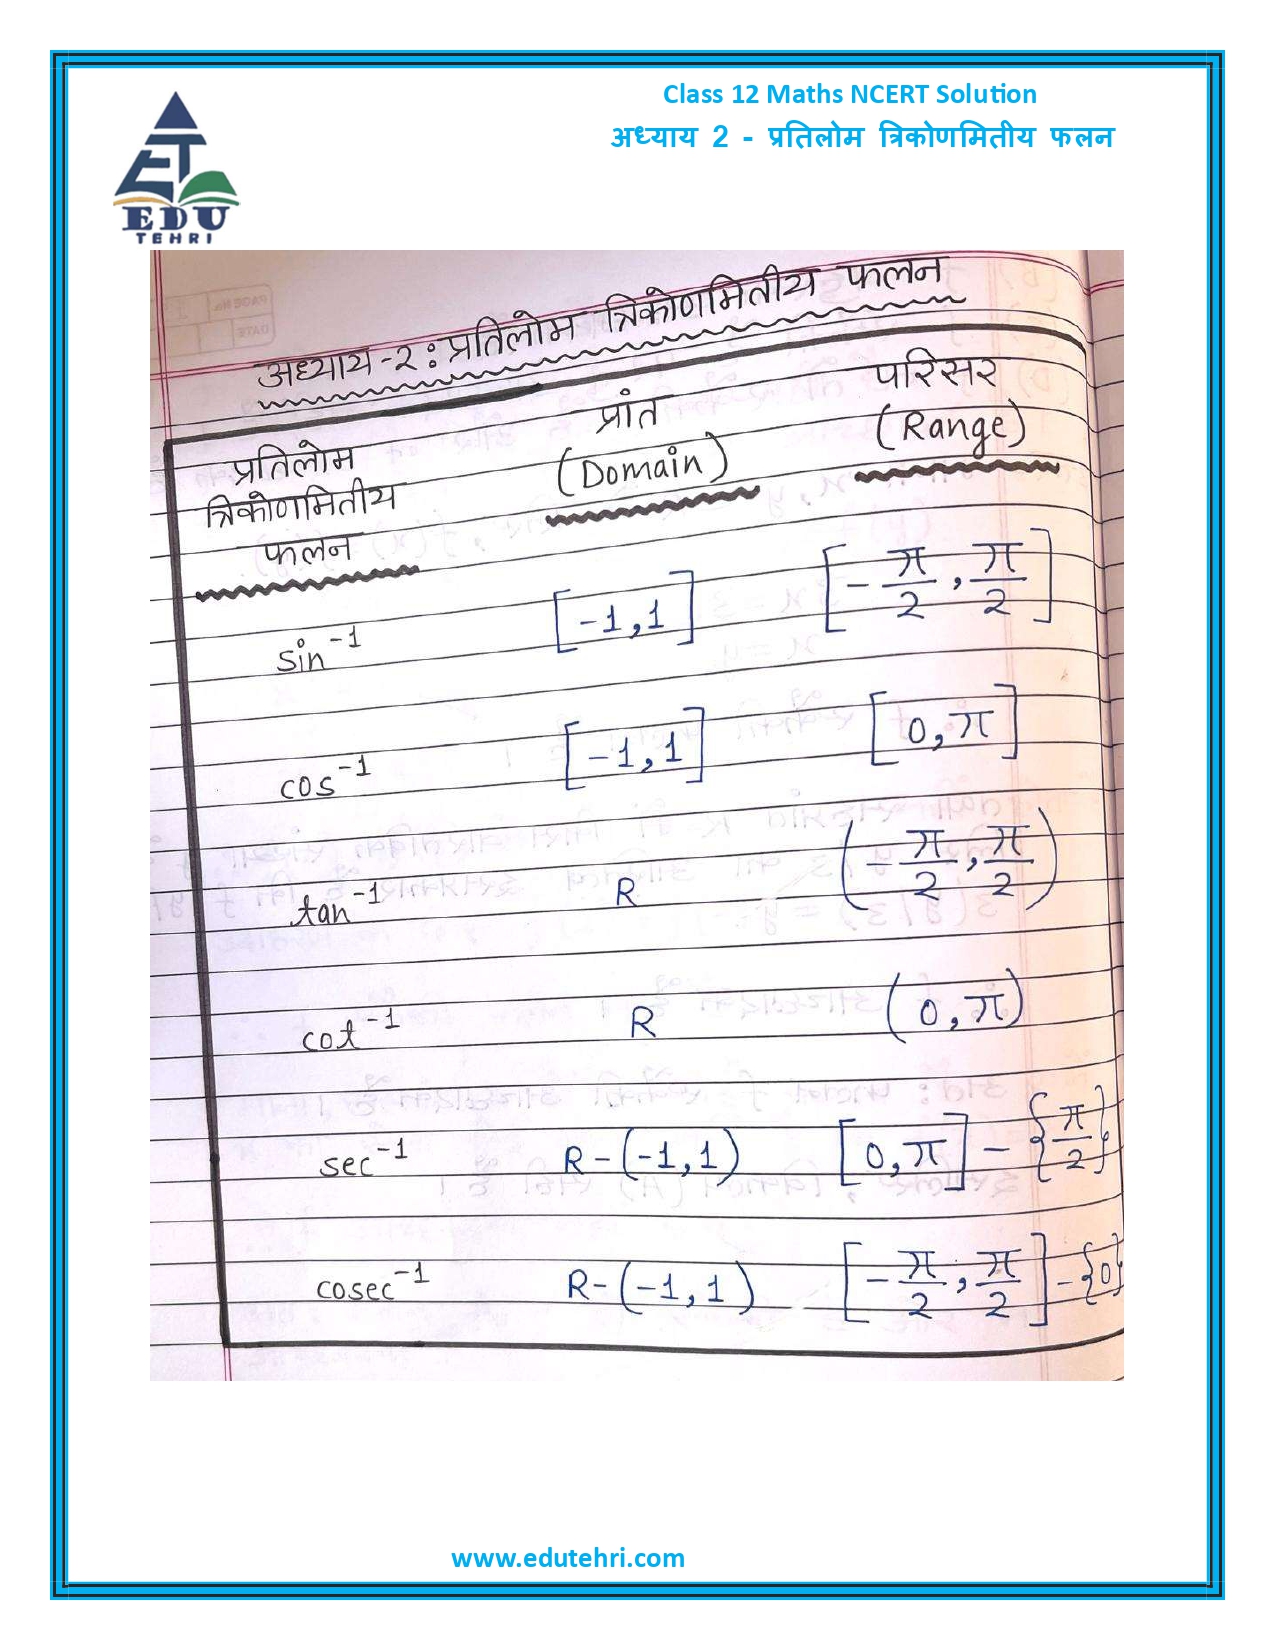 Class 12 Maths NCERT Solution
अध्याय 2 - प्रतिलोम त्रिकोणमितीय फलन
EDU
TEHRI
अध्याय-२ : प्रतिलोम त्रिकोणमितीय फलन
प्रतिलोम त्रिकोणमितीय फलन प्रांत (Domain) परिसर (Range)
sin⁻¹ [-1,1] [-π/2, π/2]
cos⁻¹ [-1,1] [0,π]
tan⁻¹ R (-π/2, π/2)
cot⁻¹ R (0,π)
sec⁻¹ R-(-1,1) [0,π] - {π/2}
cosec⁻¹ R-(-1,1) [-π/2, π/2] - {0}
www.edutehri.com